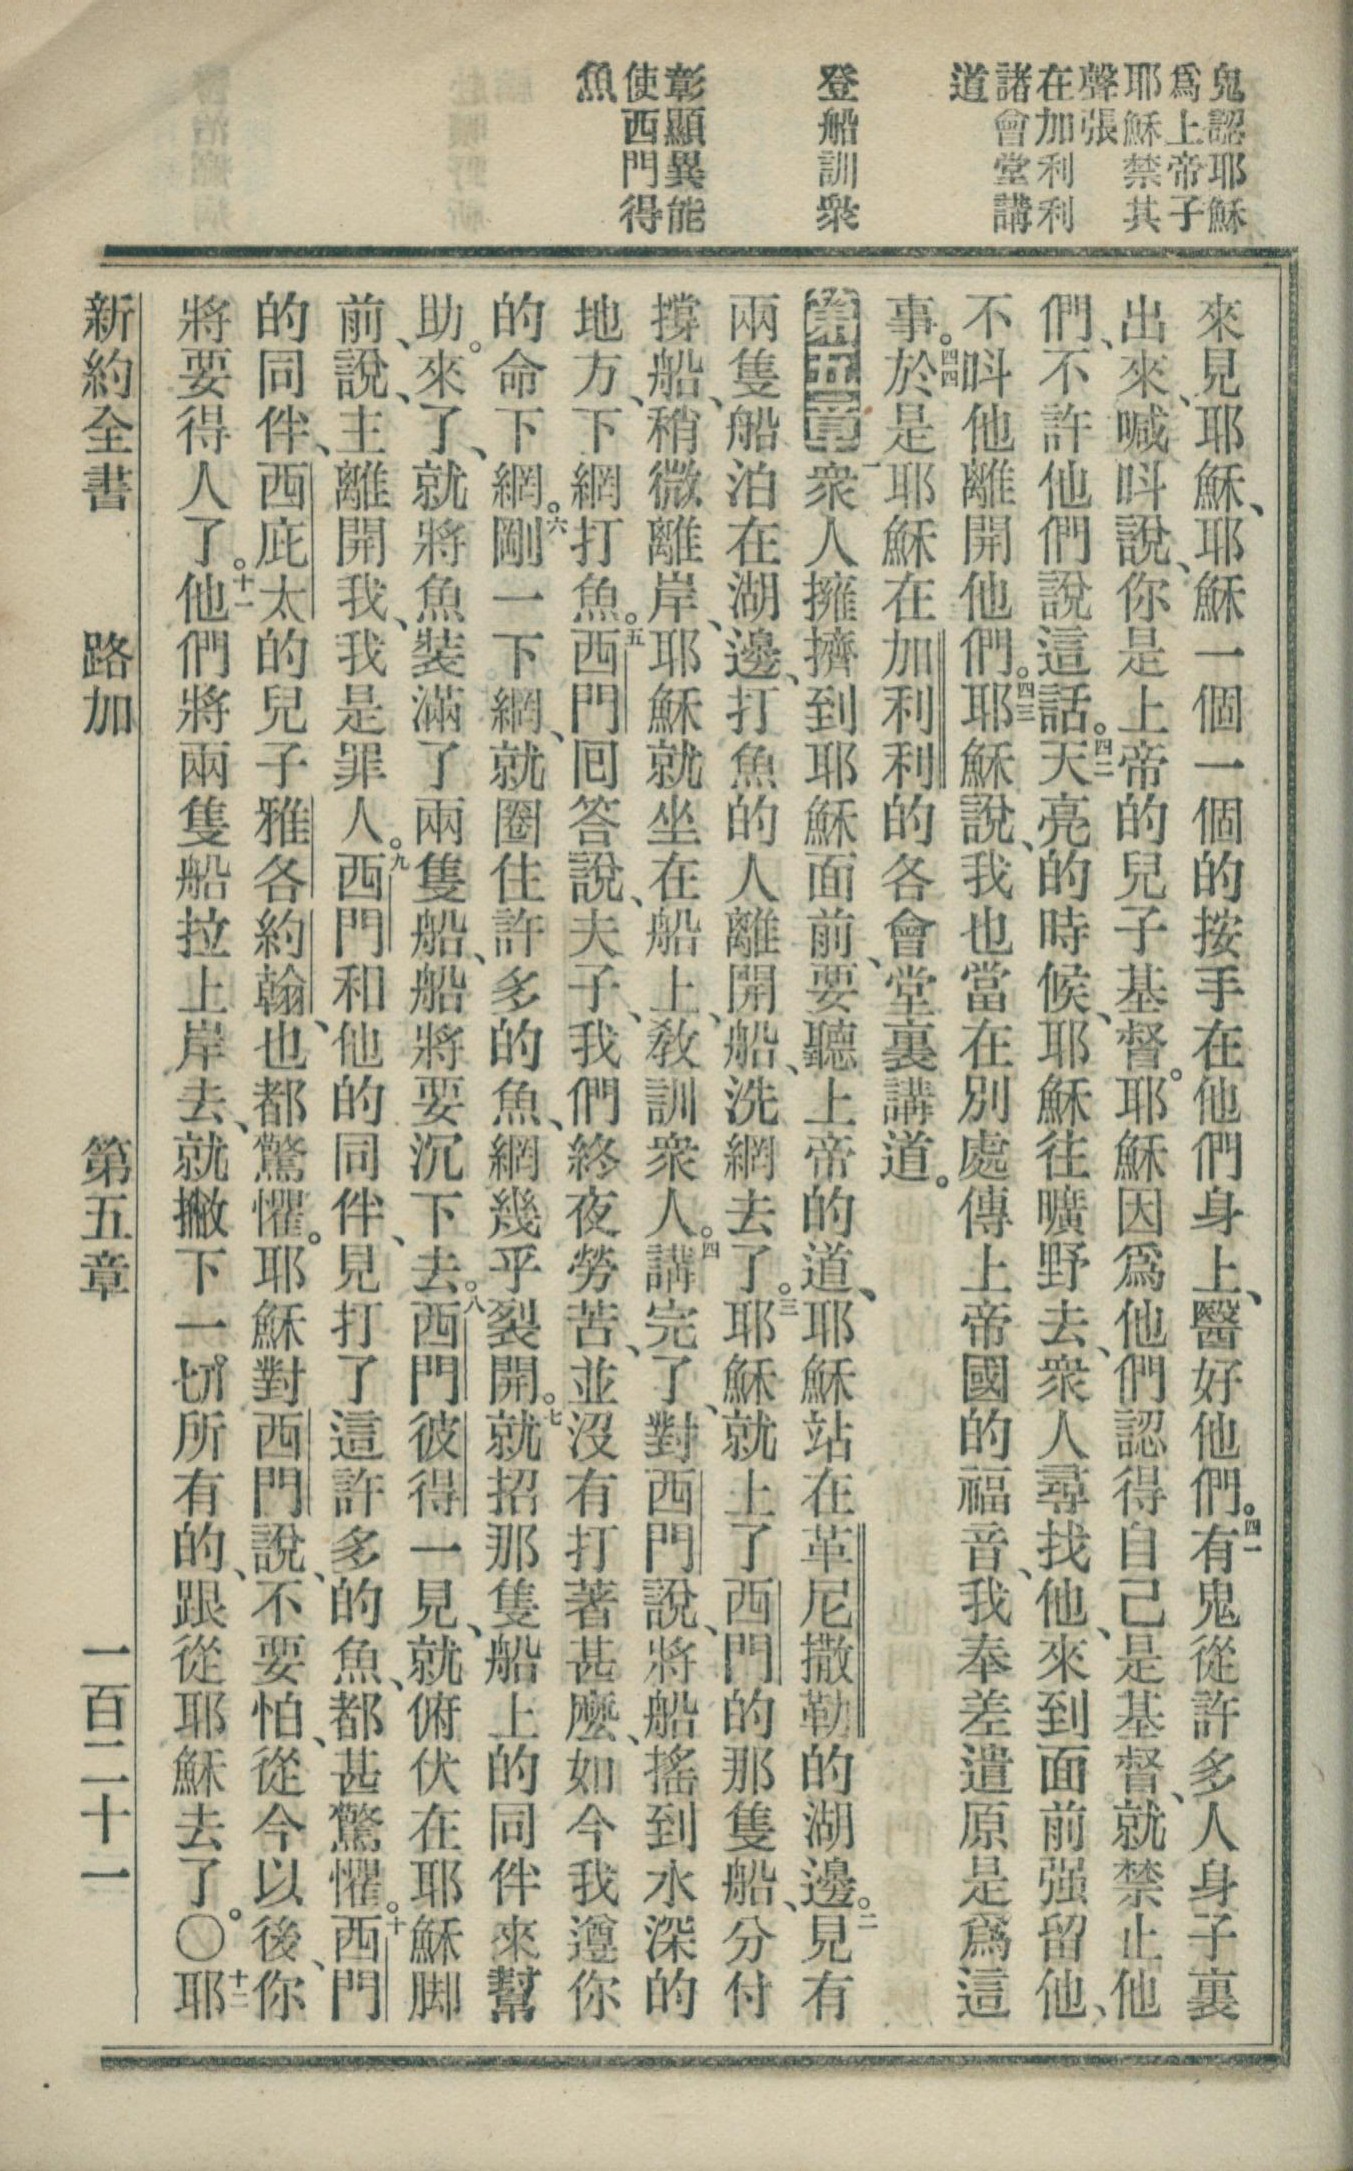 鬼認耶穌
爲上帝子
耶穌禁其
聲張
在加利利
諸會堂講
道
登船訓衆
彰顯異能
使西門得
魚
來見耶穌、耶穌一個一個的按手在他們身上、醫好他們。四一有鬼從許多人身子裏
出來、喊呌說、你是上帝的兒子基督。耶穌因爲他們認得自己是基督、就禁止他
們、不許他們說這話。四二天亮的時候、耶穌往曠野去、衆人尋找他、來到面前强留他、
不呌他離開他們。四三耶穌說、我也當在別處傳上帝國的福音、我奉差遣原是爲這
事。四四於是耶穌在加利利的各會堂裏講道。
第五章一衆人擁擠到耶穌面前、要聽上帝的道、耶穌站在革尼撒勒的湖邊。二見有
兩隻船泊在湖邊、打魚的人離開船、洗網去了。三耶穌就上了西門的那隻船、分付
撐船、稍微離岸、耶穌就坐在船上、敎訓衆人。四講完了、對西門說、將船搖到水深的
地方、下網打魚。五西門回答說、夫子、我們終夜勞苦、並沒有打著甚麽、如今我遵你
的命下網。六剛一下網、就圈住許多的魚、網幾乎裂開。七就招那隻船上的同伴來幫
助。來了、就將魚裝滿了兩隻船、船將要沉下去。八西門彼得一見、就俯伏在耶穌脚
前、說、主離開我、我是罪人。九西門和他的同伴、見打了這許多的魚、都甚驚懼。十西門
的同伴、西庇太的兒子雅各約翰、也都驚懼。耶穌對西門說、不要怕、從今以後、你
將要得人了。十一他們將兩隻船拉上岸去、就撇下一切所有的、跟從耶穌去了。〇十二耶
新約全書 路加 第五章 一百二十一